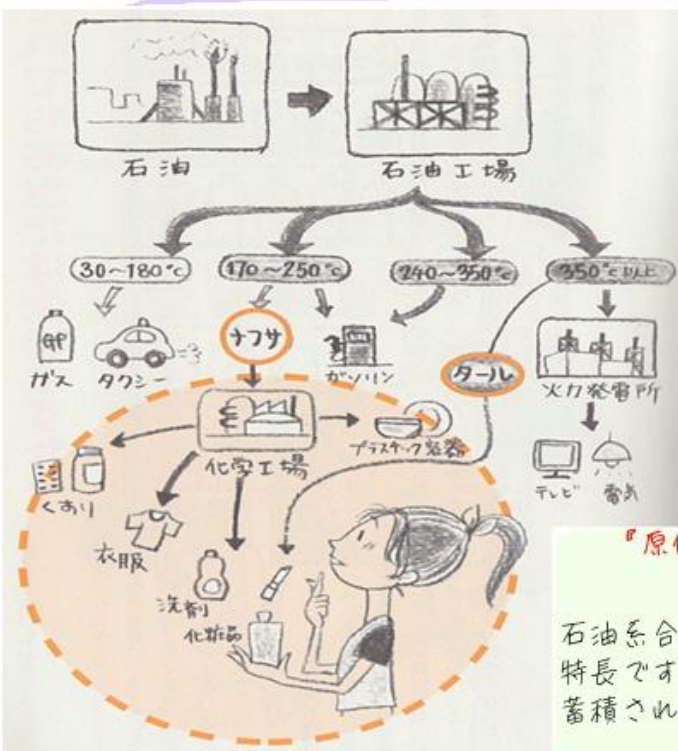 石油
石油工場
30~180℃
170~250℃
240~350℃
350℃以上
ガス
タクシー
ナフサ
ガソリン
タール
火力発電所
テレビ
電気
化学工場
プラスチック容器
くすり
衣服
洗剤
化粧品
『原
石油系合
特長です
蓄積され